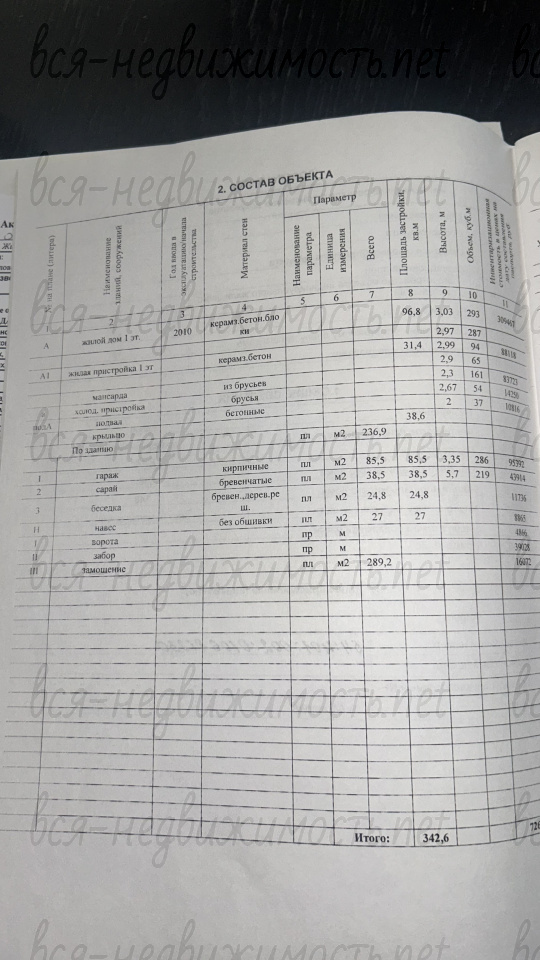 вся-недвижимость.net
2. СОСТАВ ОБЪЕКТА
№ на плане (литера) Наименование зданий, сооружений Год ввода в эксплуатацию/начала строительства Материал стен Параметр Площадь застройки, кв.м Высота, м Объем, куб.м Инвентаризационная стоимость в ценах на дату составления паспорта, руб.
Наименование параметра Единица измерения Всего
1 2 3 4 5 6 7 8 9 10 11
А жилой дом 1 эт. 2010 керамз.бетон.бло
ки 96,8 3,03 293 309467
2,97 287
А1 жилая пристройка 1 эт керамз.бетон 31,4 2,99 94 88118
2,9 65
мансарда из брусьев 2,3 161 83723
холод. пристройка брусья 2,67 54 14250
под.А подвал бетонные 2 37 10816
крыльцо 38,6
По зданию пл м2 236,9
1 гараж кирпичные пл м2 85,5 85,5 3,35 286 95392
2 сарай бревенчатые пл м2 38,5 38,5 5,7 219 43914
3 беседка бревен.,дерев.ре
ш. пл м2 24,8 24,8 11736
Н навес без обшивки пл м2 27 27 8865
I ворота пр м 4866
II забор пр м 39028
III замощение пл м2 289,2 16072
Итого: 342,6